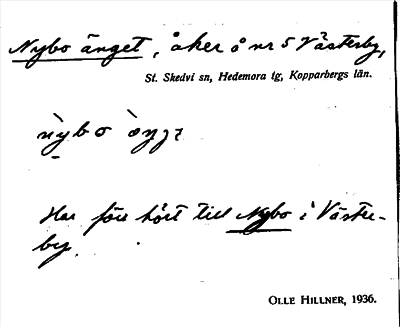 Nybo änget, åker å nr 5 Västerby,
St. Skedvi sn, Hedemora tg, Kopparbergs län.
nybo
Har förr hört till Nybo i Väster-
by.
OLLE HILLNER, 1936.